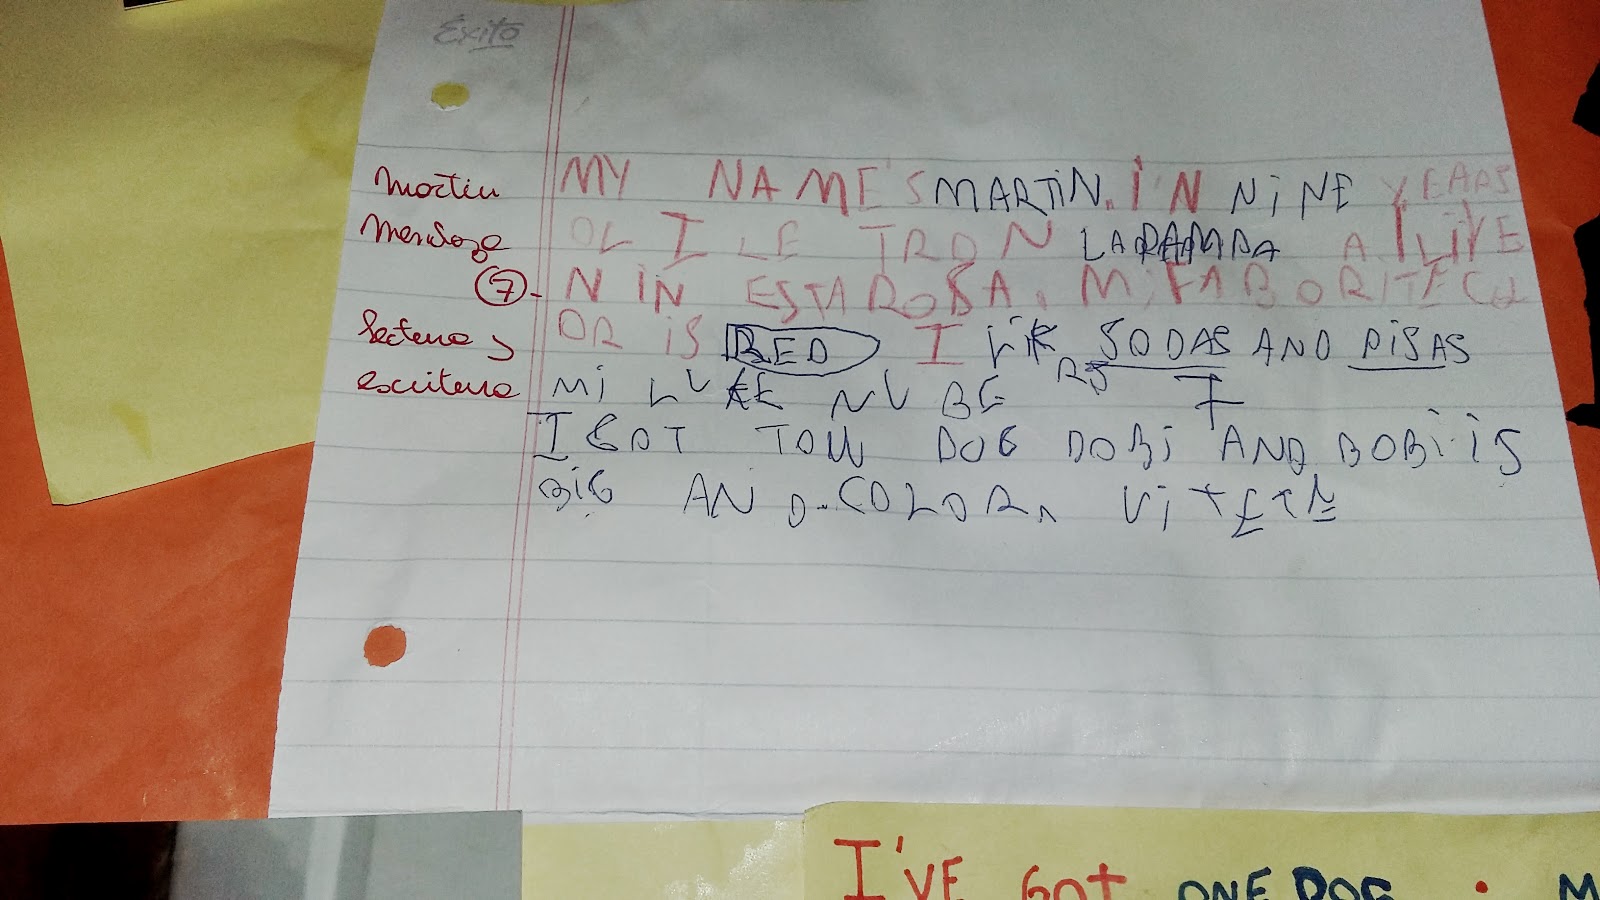 Éxito
Martin
Mendoza
7-
Lectura y
escritura
MY NAME'S MARTIN. I'N NINE YEARS
OL I LE TRON LA PAMPA A I LIVE
N IN ESTAROSA. MI FABORITE COL
OR IS RED I LIK SODAS AND PISAS
MI LUKE NU BE RS 7
I GOT TOW DOG DOBI AND BOBI IS
BIG AND COLOR
I'VE GOT ONE DOG . M